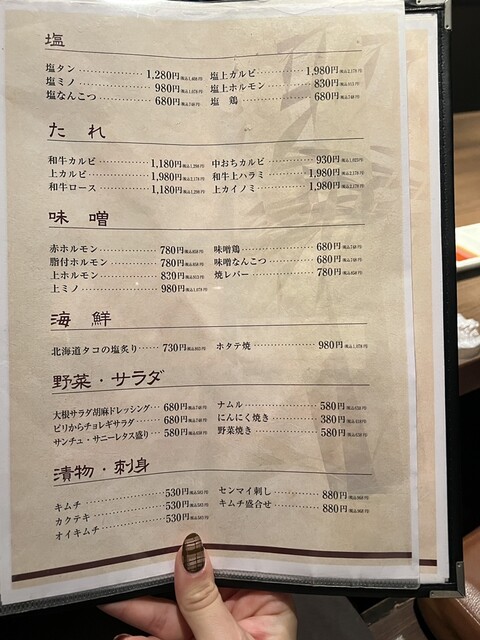 塩
塩タン 1,280円 税込1,408円
塩ミノ 980円 税込1,078円
塩なんこつ 680円 税込748円
塩上カルビ 1,980円 税込2,178円
塩上ホルモン 830円 税込913円
塩 鶏 680円 税込748円
たれ
和牛カルビ 1,180円 税込1,298円
上カルビ 1,980円 税込2,178円
和牛ロース 1,180円 税込1,298円
中おちカルビ 930円 税込1,023円
和牛上ハラミ 1,980円 税込2,178円
上カイノミ 1,980円 税込2,178円
味噌
赤ホルモン 780円 税込858円
脂付ホルモン 780円 税込858円
上ホルモン 830円 税込913円
上ミノ 980円 税込1,078円
味噌鶏 680円 税込748円
味噌なんこつ 680円 税込748円
焼レバー 780円 税込858円
海鮮
北海道タコの塩炙り 730円 税込803円
ホタテ焼 980円 税込1,078円
野菜・サラダ
大根サラダ胡麻ドレッシング 680円 税込748円
ピリからチョレギサラダ 680円 税込748円
サンチュ・サニーレタス盛り 580円 税込638円
ナムル 580円 税込638円
にんにく焼き 380円 税込418円
野菜焼き 580円 税込638円
漬物・刺身
キムチ 530円 税込583円
カクテキ 530円 税込583円
オイキムチ 530円 税込583円
センマイ刺し 880円 税込968円
キムチ盛合せ 880円 税込968円